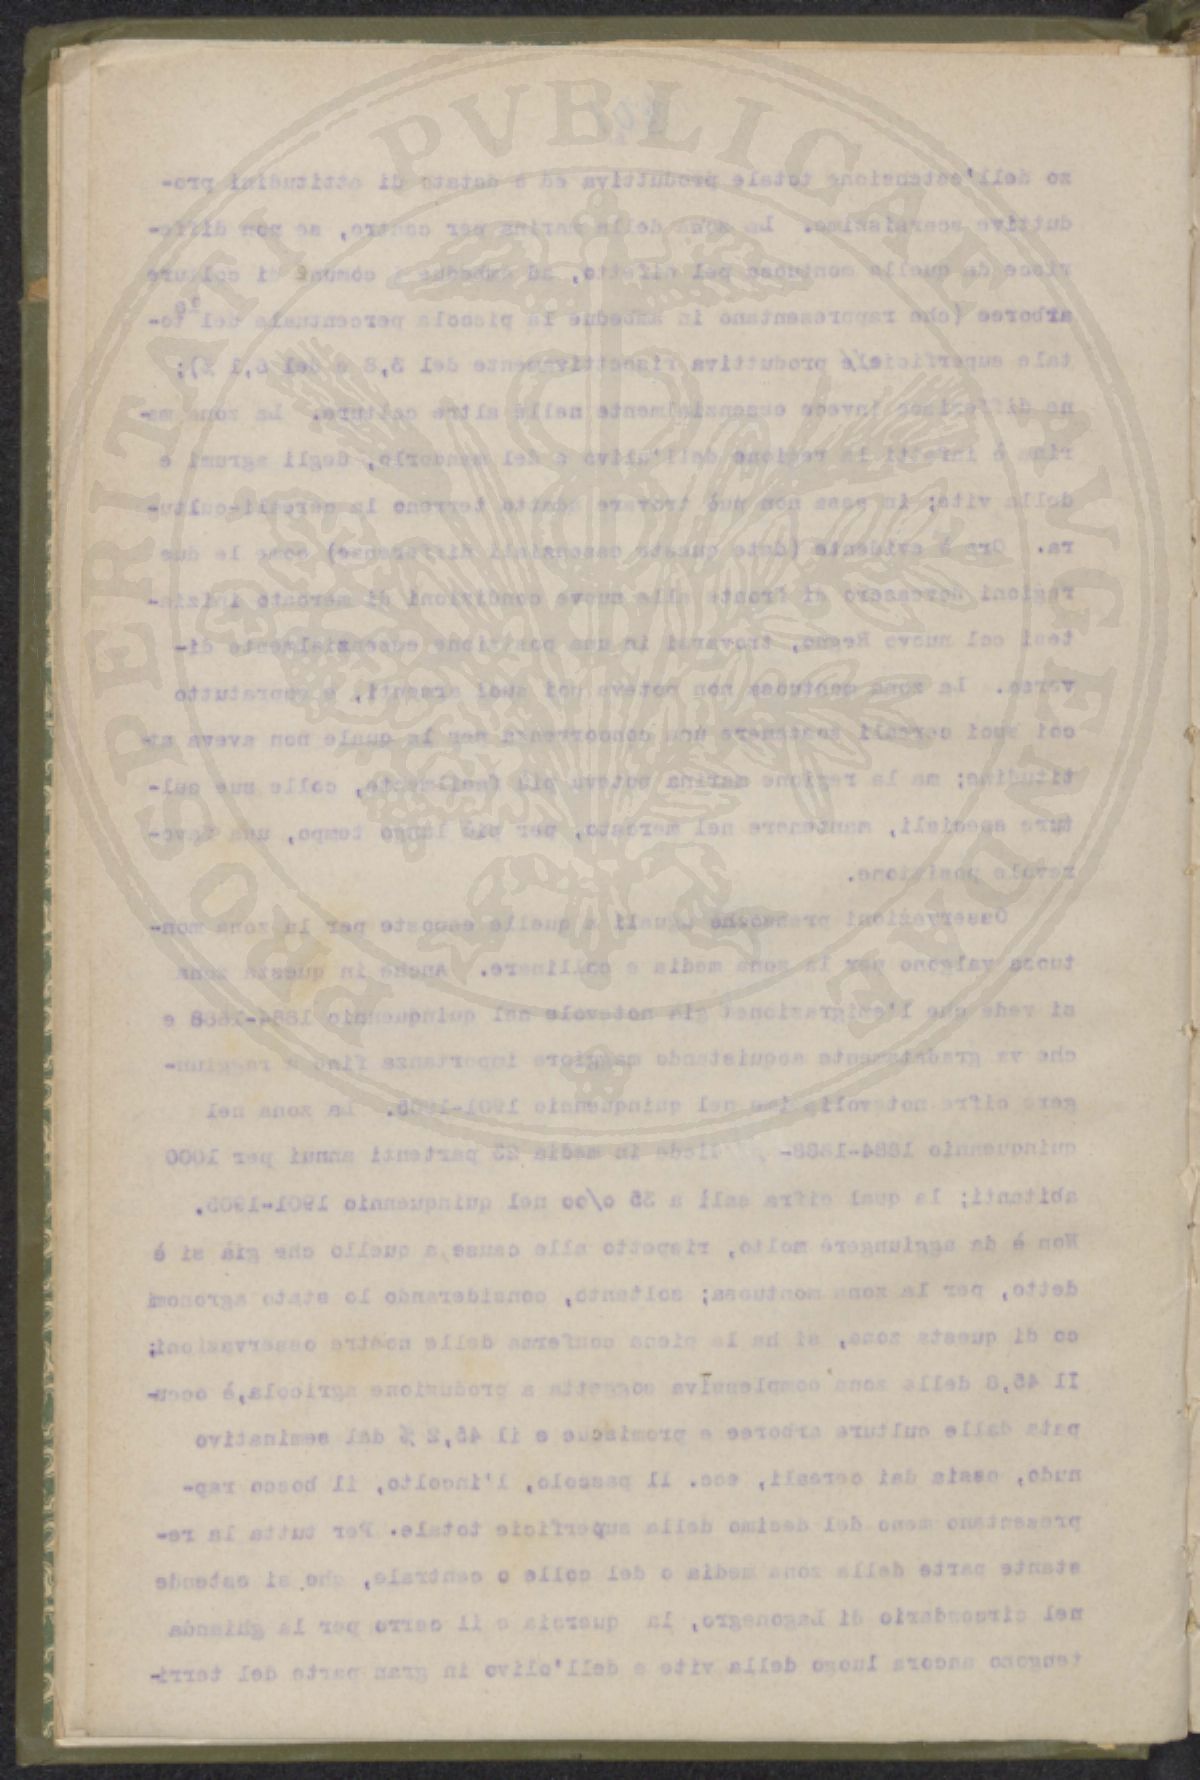 PROSPERITATI PVBLICAE AVGENDAE
zo dell'estensione totale produttiva ed è dotato di attitudini pro-
duttive scarsissime. La zona della marina per contro, se non diffe-
risce da quella montuosa pel difetto, ad ambedue comune di colture
arboree (che rappresentano in ambedue la piccola percentuale del to-
tale superficie produttiva rispettivamente del 3,8 e del 6,1 %);
ne differisce invece essenzialmente nelle altre colture. La zona ma-
rina è infatti la regione dell'ulivo e del mandorlo, degli agrumi e
della vite; in essa non può trovare adatto terreno la cereali-cultu-
ra. Ora è evidente (date queste essenziali differenze) come le due
regioni dovessero di fronte alle nuove condizioni di mercato inizia-
tesi col nuovo Regno, trovarsi in una posizione essenzialmente di-
versa. La zona montuosa non poteva coi suoi armenti, e sopratutto
coi suoi cereali sostenere una concorrenza per la quale non aveva at-
titudine; ma la regione marina poteva più facilmente, colle sue cul-
ture speciali, mantenere nel mercato, per più lungo tempo, una favo-
revole posizione.
Osservazioni pressochè uguali a quelle esposte per la zona mon-
tuosa valgono per la zona media e collinare. Anche in questa zona
si vede che l'emigrazione è già notevole nel quinquennio 1884-1888 e
che va gradatamente acquistando maggiore importanza fino a raggiun-
gere cifre notevolissime nel quinquennio 1901-1905. La zona nel
quinquennio 1884-1888- diede in media 23 partenti annui per 1000
abitanti; la qual cifra salì a 35 o/oo nel quinquennio 1901-1905.
Non è da aggiungere molto, rispetto alle cause, a quello che già si è
detto, per la zona montuosa; soltanto, considerando lo stato agronomi
co di questa zona, si ha la piena conferma delle nostre osservazioni;
Il 45,8 della zona complessiva soggetta a produzione agricola, è occu-
pata dalle culture arboree e promiscue e il 45,2 % dal seminativo
nudo, ossia dai cereali, ecc. il pascolo, l'incolto, il bosco rap-
presentano meno del decimo della superficie totale. Per tutta la re-
stante parte della zona media o del colle o centrale, che si estende
nel circondario di Lagonegro, la quercia o il cerro per la ghianda
tengono ancora luogo della vite e dell'olivo in gran parte del terri-